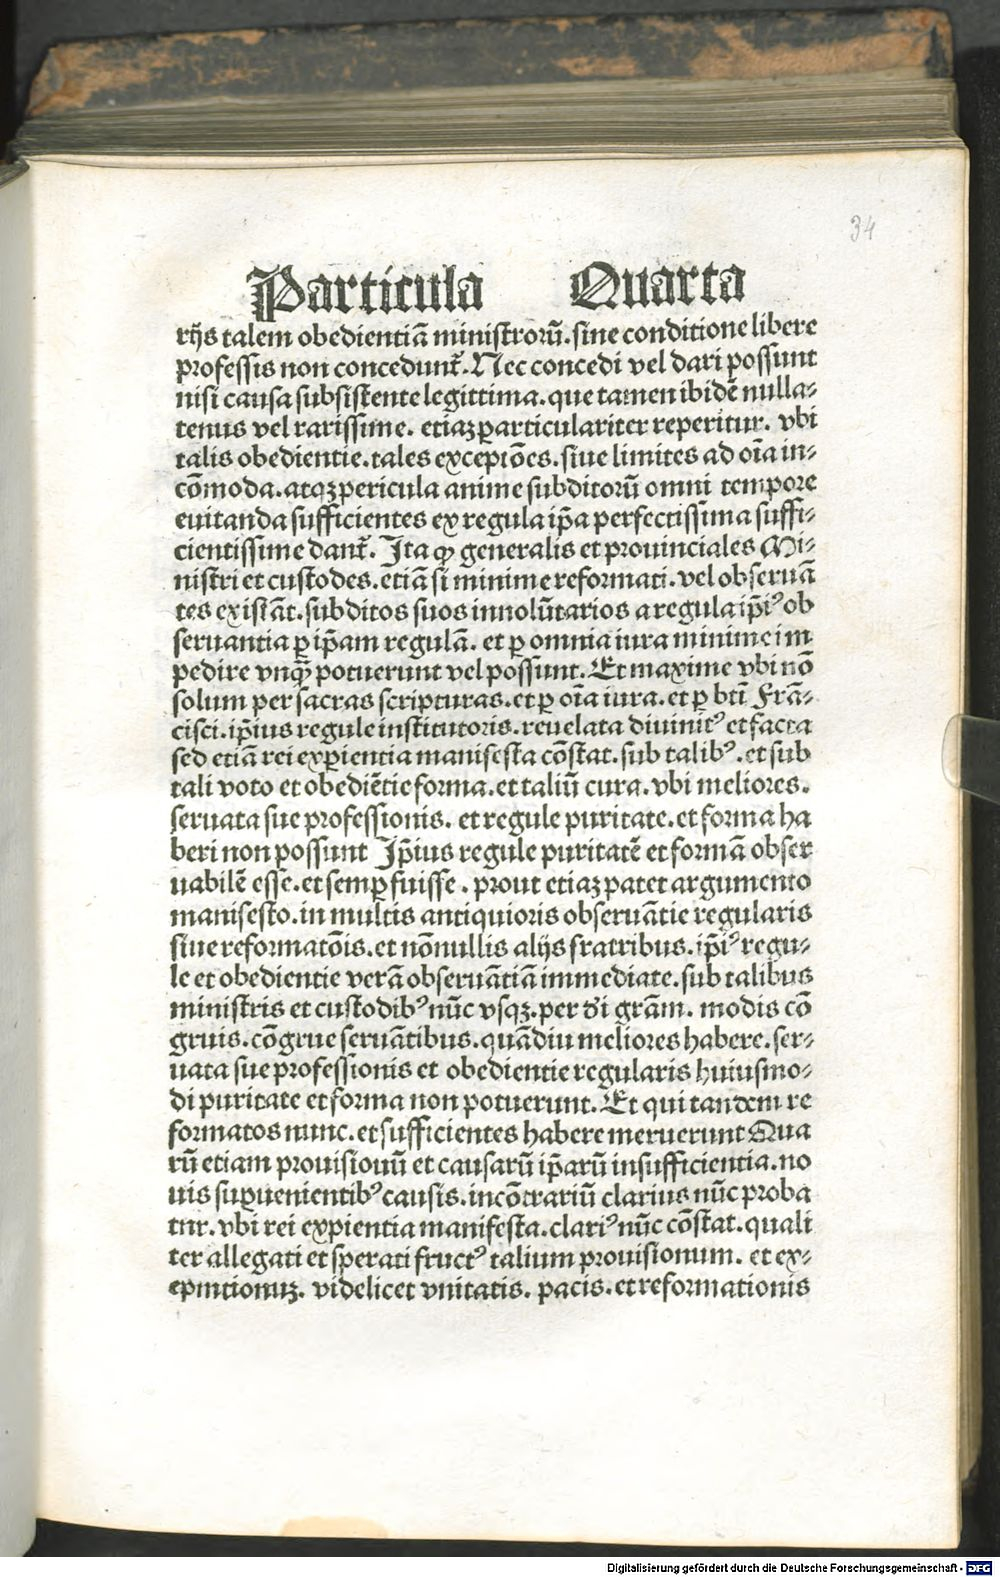 34
Particula Quarta
rijs talem obedientiā ministrorū. sine conditione libere
professis non concedunt᷑. Nec concedi vel dari possunt
nisi causa subsistente legittima. que tamen ibidē nulla⸗
tenus vel rarissime. etiaꝫ ꝑarticulariter reperitur. vbi
talis obedientie. tales exceptōes. siue limites ad oīa in⸗
cōmoda. atqꝫ pericula anime subditorū omni tempore
euitanda sufficientes ex regula ip̄a perfectissima suffi⸗
cientissime dant᷑. Ita ꝙ generalis et prouinciales Mi⸗
nistri et custodes. etiā si minime reformati. vel obseruā
tes existāt. subditos suos inuolūtarios a regula ip̄iꝰ ob
seruantia ꝑ ip̄am regulā. et ꝑ omnia iura minime im
pedire vnq̄ꝫ potuerunt vel possunt. Et maxime vbi nō
solum per sacras scripturas. et ꝑ oīa iura. et ꝑ bt̄i Frā⸗
cisci. ip̄ius regule institutoris. reuelata diuinitꝰ et facta
sed etiā rei exꝑientia manifesta cōstat. sub talibꝰ. et sub
tali voto et obediētie forma. et taliū cura. vbi meliores.
seruata sue professionis. et regule puritate. et forma ha
beri non possunt Ip̄ius regule puritatē et formā obser
uabilē esse. et semꝑ fuisse. prout etiaꝫ patet argumento
manifesto. in multis antiquioris obseruātie regularis
siue reformatōis. et nōnullis alijs fratribus. ip̄iꝰ regu⸗
le et obedientie verā obseruātiā immediate. sub talibus
ministris et custodibꝰ nūc vsqꝫ. per dī grām. modis cō
gruis. cōgrue seruātibus. quādiu meliores habere. ser⸗
uata sue professionis et obedientie regularis huiusmo⸗
di puritate et forma non potuerunt. Et qui tandem re
formatos nunc. et sufficientes habere meruerunt Qua
rū etiam prouisionū et causarū ip̄arū insufficientia. no
uis suꝑuenientibꝰ causis. in cōtrariū clarius nūc proba
tur. vbi rei exꝑientia manifesta. clariꝰ nūc cōstat. quali
ter allegati et sperati fructꝰ talium prouisionum. et ex⸗
epmtionuꝫ. videlicet vnitatis. pacis. et reformationis
Digitalisierung gefördert durch die Deutsche Forschungsgemeinschaft - DFG